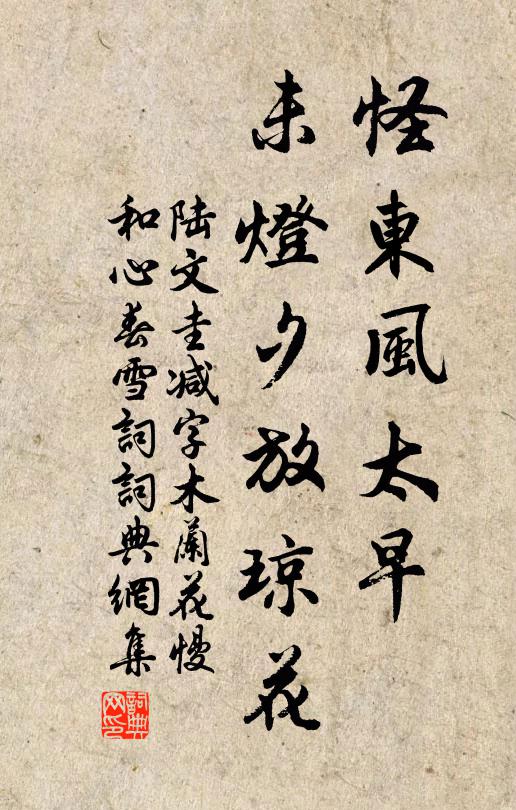 怪東風太早
未燈夕放琼花
陆文圭减字木蘭花慢
和心春雪詞詞典網集
詞典网印